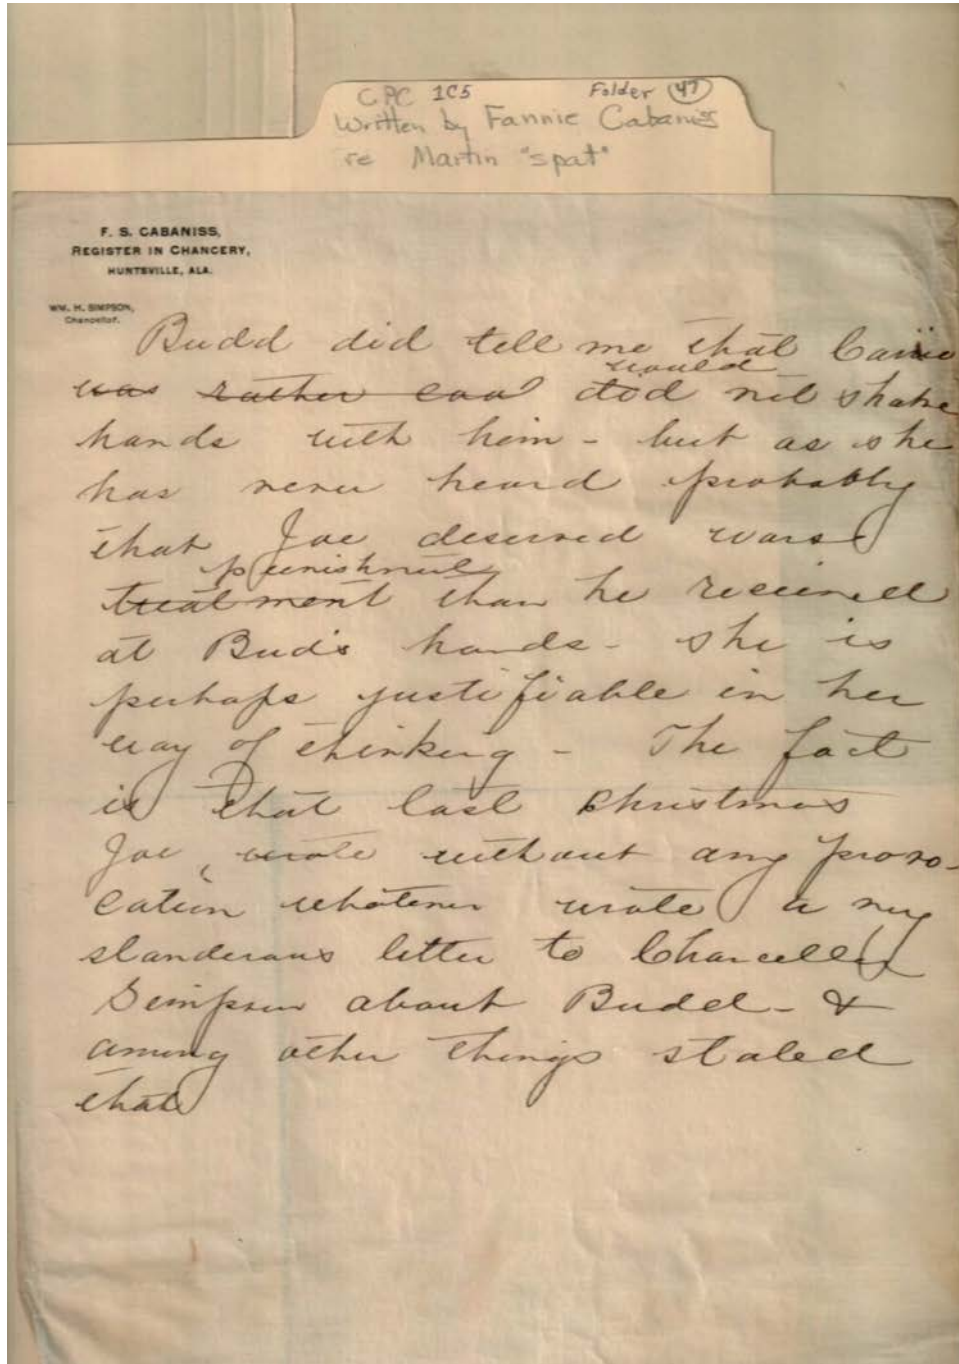 CPC 1C5 Folder 47
Written by Fannie Cabaniss
re Martin "spat"
F. S. CABANISS,
REGISTER IN CHANCERY,
HUNTSVILLE, ALA.
WM. H. SIMPSON,
Chancellor.
Budd did tell me that Carrie
would
was rather cool did not shake
hands with him - but as she
has never heard probably
that Joe deserved worse
punishment
treatment than he received
at Bud's hands - she is
perhaps justifiable in her
way of thinking - The fact
is that last Christmas
Joe, wrote without any provo-
cation whatever wrote a very
slanderous letter to Chancellor
Simpson about Budd - &
among other things stated
that